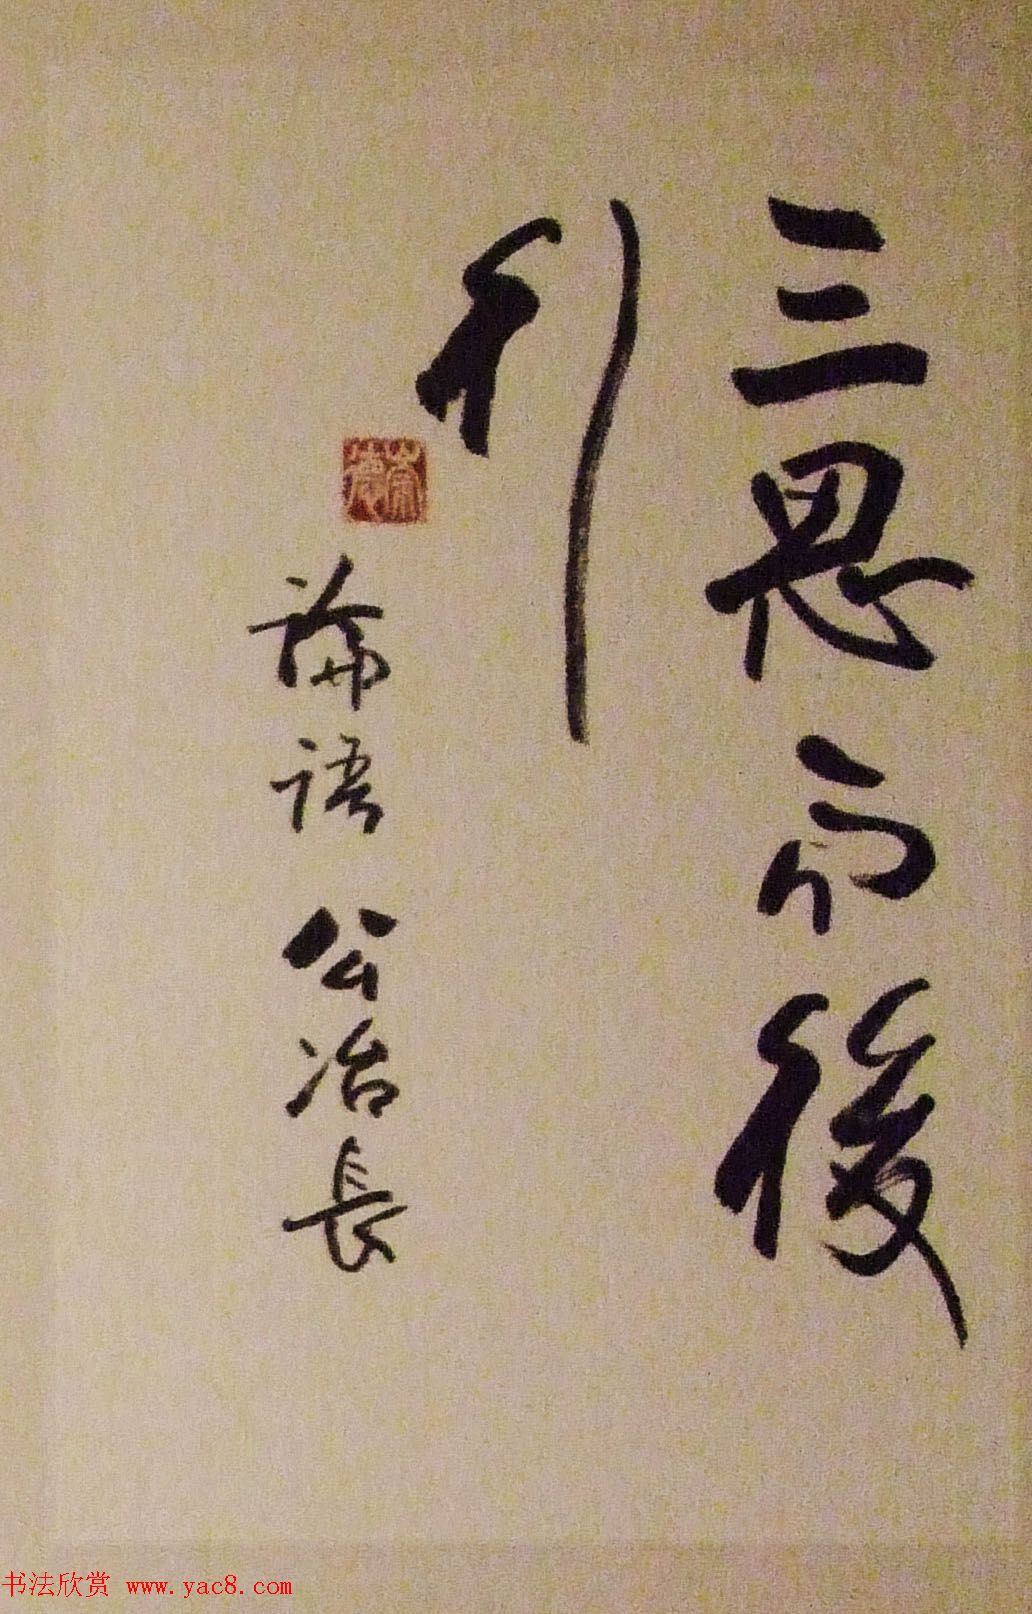 三思而後
行
論語 公冶長
书法欣赏 www.yac8.com